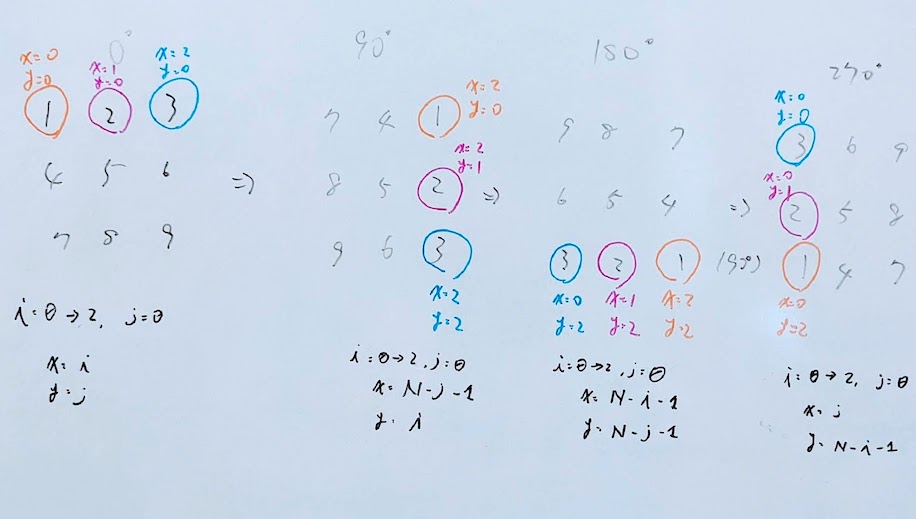 0°
x=0
y=0
x=1
y=0
x=2
y=0
1 2 3
4 5 6
7 8 9
i=0→2, j=0
x=i
y=j
=>
90°
x=2
y=0
7 4 1
x=2
y=1
8 5 2
9 6 3
x=2
y=2
i=0→2, j=0
x=N-j-1
y=i
=>
180°
9 8 7
6 5 4
3 2 1
x=0
y=2
x=1
y=2
x=2
y=2
i=0→2, j=0
x=N-i-1
y=N-j-1
=>
(90°)
270°
x=0
y=0
3 6 9
x=0
y=1
2 5 8
1 4 7
x=0
y=2
i=0→2, j=0
x=j
y=N-i-1